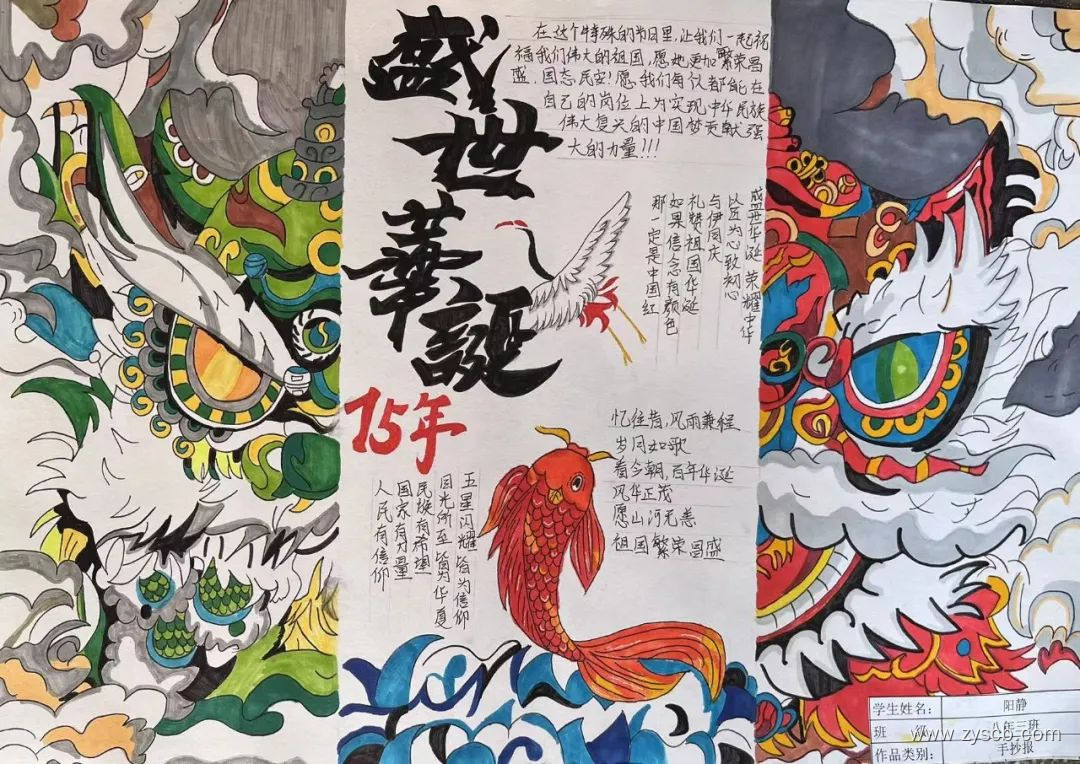 盛世華誕
75年
在这个特殊的节日里,让我们一起祝
福我们伟大的祖国,愿她更加繁荣昌
盛、国态民安!愿我们每位都能在
自己的岗位上为实现中华民族
伟大复兴的中国梦贡献强
大的力量!!!
盛世华诞 荣耀中华
以匠为心致初心
与伊同庆
礼赞祖国华诞
如果信念有颜色
那一定是中国红
忆往昔,风雨兼程
岁月如歌
看今朝,百年华诞
风华正茂
愿山河无恙
祖国繁荣昌盛
五星闪耀皆为信仰
目光所至皆为华夏
民族有希望
国家有力量
人民有信仰
学生姓名: 阳静
班 级: 八年三班
作品类别: 手抄报
www.zyscb.com